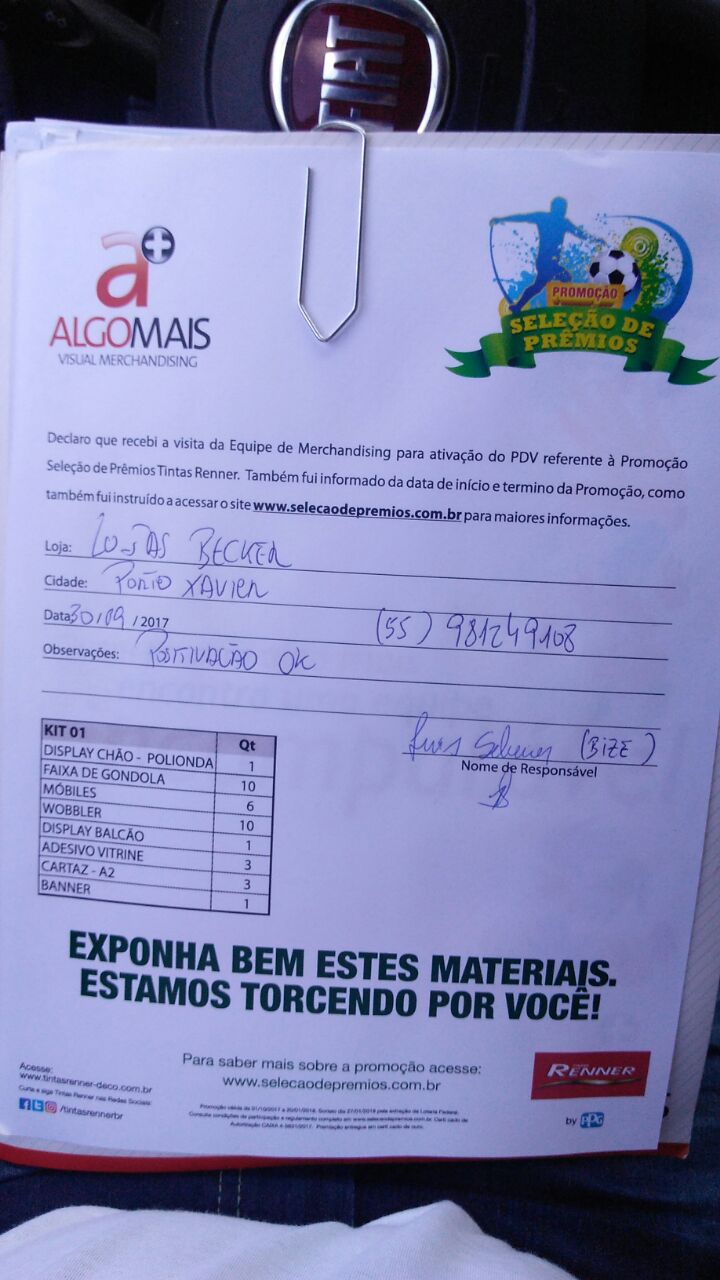 FIAT
a+
ALGOMAIS
VISUAL MERCHANDISING
PROMOÇÃO
SELEÇÃO DE
PRÊMIOS
Declaro que recebi a visita da Equipe de Merchandising para ativação do PDV referente à Promoção
Seleção de Prêmios Tintas Renner. Também fui informado da data de início e termino da Promoção, como
também fui instruído a acessar o site www.selecaodepremios.com.br para maiores informações.
Loja: LOJAS BECKER
Cidade: PORTO XAVIER
Data 30/09/2017 (55) 981249108
Observações: POSITIVAÇÃO OK
(BIZE)
Nome de Responsável
KIT 01 Qt
DISPLAY CHÃO - POLIONDA 1
FAIXA DE GONDOLA 10
MÓBILES 6
WOBBLER 10
DISPLAY BALCÃO 1
ADESIVO VITRINE 3
CARTAZ - A2 3
BANNER 1
EXPONHA BEM ESTES MATERIAIS.
ESTAMOS TORCENDO POR VOCÊ!
Acesse:
www.tintasrenner-deco.com.br
Curta e siga Tintas Renner nas Redes Sociais:
/tintasrennerbr
Para saber mais sobre a promoção acesse:
www.selecaodepremios.com.br
Promoção válida de 01/10/2017 a 20/01/2018. Sorteio dia 27/01/2018 pela extração da Loteria Federal.
Consulte condições de participação e regulamento completo em www.selecaodepremios.com.br. Certificado de
RENNER
by PPG